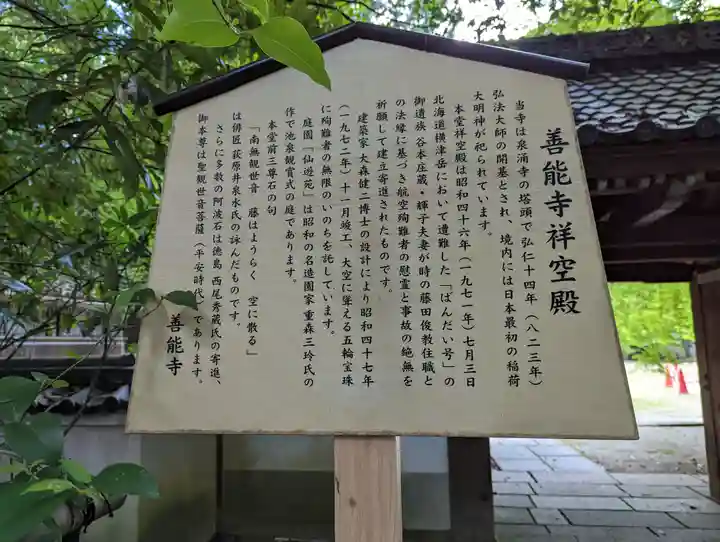 善能寺祥空殿
当寺は泉涌寺の塔頭で弘仁十四年(八二三年)
弘法大師の開基とされ、境内には日本最初の稲荷
大明神が祀られています。
本堂祥空殿は昭和四十六年(一九七一年)七月三日
北海道横津岳において遭難した「ばんだい号」の
御遺族 谷本庄蔵、輝子夫妻が時の藤田俊教住職と
の法縁に基づき航空殉難者の慰霊と事故の絶無を
祈願して建立寄進されたものです。
建築家 大森健二博士の設計により昭和四十七年
(一九七二年)十一月竣工、大空に聳える五輪宝珠
に殉難者の無限のいのちを託しています。
庭園「仙遊苑」は昭和の名造園家重森三玲氏の
作で池泉観賞式の庭であります。
本堂前三尊石の句
「南無観世音 藤はようらく 空に散る」
は俳匠 荻原井泉水氏の詠んだものです。
さらに多数の阿波石は徳島 西尾秀蔵氏の寄進、
御本尊は聖観世音菩薩(平安時代)であります。
善能寺